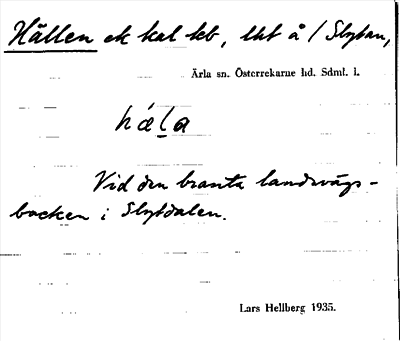 Hällen ek kal kb, lht å / Slytan,
Ärla sn. Österrekarne hd. Sdml. l.
hǽḷa
Vid den branta landsvägs-
backen i Slytdalen.
Lars Hellberg 1935.